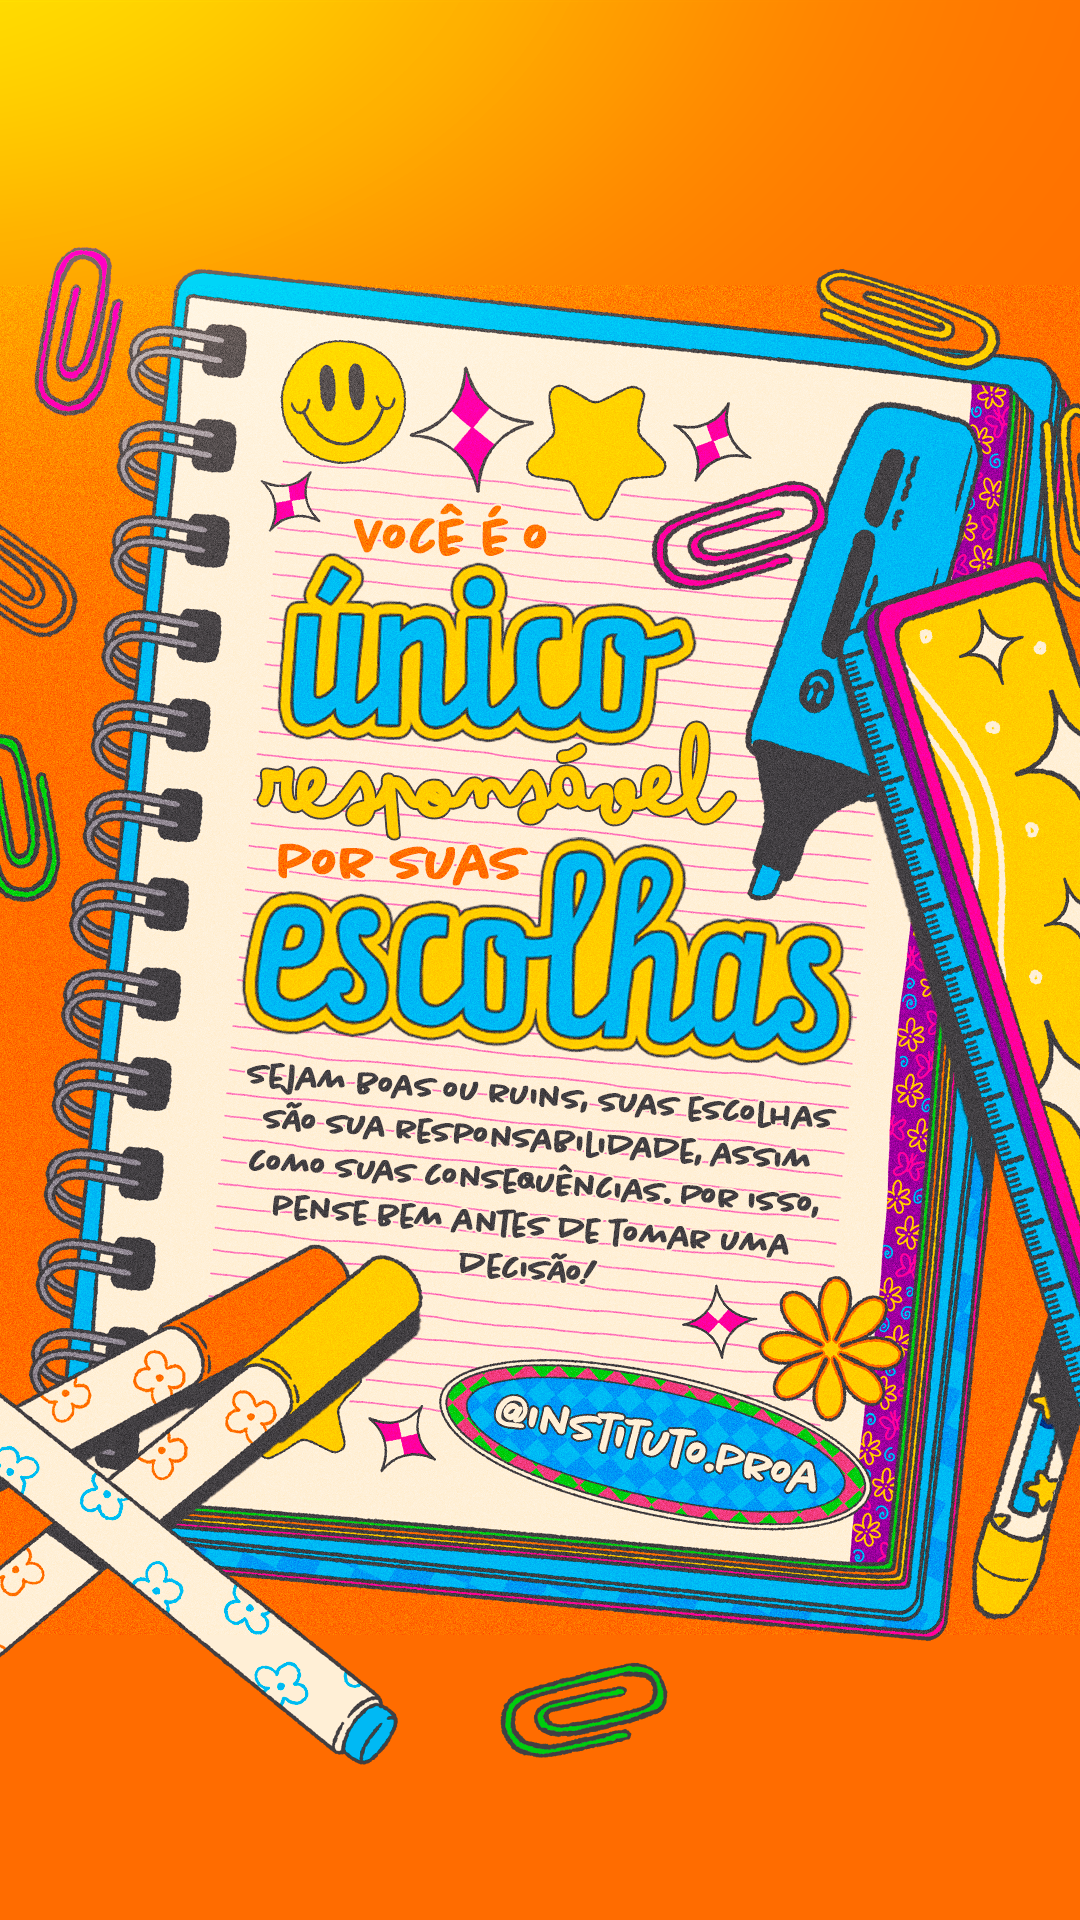 VOCÊ É O
único
responsável
POR SUAS
escolhas
SEJAM BOAS OU RUINS, SUAS ESCOLHAS
SÃO SUA RESPONSABILIDADE, ASSIM
COMO SUAS CONSEQUÊNCIAS. POR ISSO,
PENSE BEM ANTES DE TOMAR UMA
DECISÃO!
@INSTITUTO.PROA